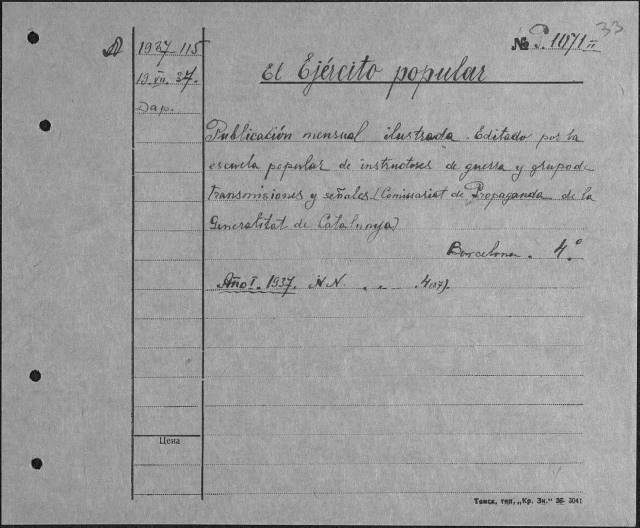 33
1937-115
№ S. 1071 II
19.VII.37.
El Ejército popular
Dap.
Publicación mensual ilustrada. Editado por la
escuela popular de instructores de guerra y grupo de
transmisiones y señales (Comissariat de Propaganda de la
Generalitat de Catalunya)
Barcelona. 4.º
Año I. 1937. NN. „ „ — 4
Цена
Томск, тип. „Кр. Зн.“